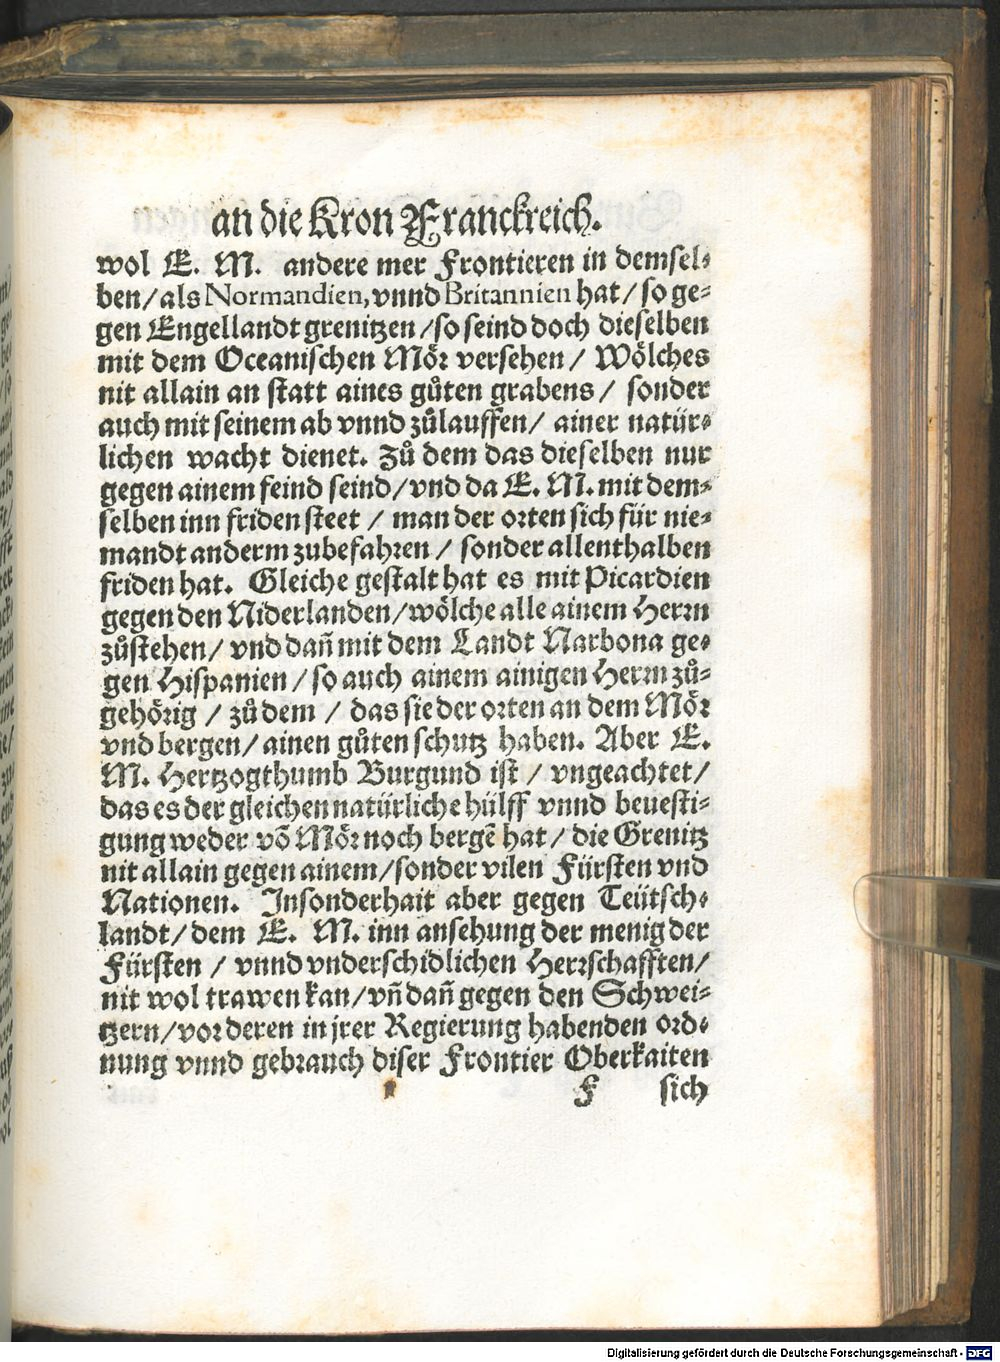 an die Kron Franckreich.
wol E. M. andere mer Frontieren in demsel-
ben/als Normandien, vnnd Britannien hat/ so ge-
gen Engellandt grenitzen/so seind doch dieselben
mit dem Oceanischen Moͤr versehen/ Woͤlches
nit allain an statt aines guͦten grabens/ sonder
auch mit seinem ab vnnd zuͦlauffen/ ainer natür-
lichen wacht dienet. Zuͦ dem das dieselben nur
gegen ainem feind seind/vnd da E. M. mit dem-
selben inn friden steet / man der orten sich für nie-
mandt anderm zubefahren / sonder allenthalben
friden hat. Gleiche gestalt hat es mit Picardien
gegen den Niderlanden/woͤlche alle ainem Herrn
zuͦstehen/ vnd dañ mit dem Landt Narbona ge-
gen Hispanien/so auch ainem ainigen Herrn zuͦ-
gehoͤrig / zuͦ dem / das sie der orten an dem Moͤr
vnd bergen/ ainen guͦten schutz haben. Aber E.
M. Hertzogthumb Burgund ist / vngeachtet/
das es der gleichen natürliche hülff vnnd beuesti-
gung weder võ Moͤr noch bergẽ hat/ die Grenitz
nit allain gegen ainem/sonder vilen Fürsten vnd
Nationen. Insonderhait aber gegen Teütsch-
landt/dem E. M. inn ansehung der menig der
Fürsten / vnnd vnderschidlichen Herrschafften/
nit wol trawen kan/vñ dañ gegen den Schwei-
tzern/vor deren in jrer Regierung habenden ord-
nung vnnd gebrauch diser Frontier Oberkaiten
F sich
Digitalisierung gefördert durch die Deutsche Forschungsgemeinschaft - DFG